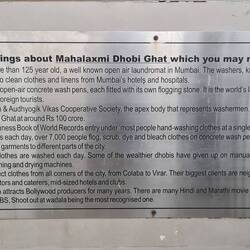 ings about Mahalaxmi Dhobi Ghat which you may n
re than 125 year old, a well known open air laundromat in Mumbai. The washers, k
o clean clothes and linens from Mumbai's hotels and hospitals.
open-air concrete wash pens, each fitted with its own flogging stone. It is the world's l
oreign tourists.
n & Audhyogik Vikas Cooperative Society, the apex body that represents washermen.
Ghat at around Rs 100 crore.
nness Book of World Records entry under most people hand-washing clothes at a single
s each day, over 7,000 people flog, scrub, dye and bleach clothes on concrete wash pen
garments to different parts of the city.
lothes are washed each day. Some of the wealthier dhobis have given up on manual
hing and drying machines.
ect clothes from all corners of the city, from Colaba to Virar. Their biggest clients are neig
tors and caterers; mid-sized hotels and clubs.
n attracts Bollywood producers for many years. There are many Hindi and Marathi movie
BS, Shoot out at wadala being the most recognised one.